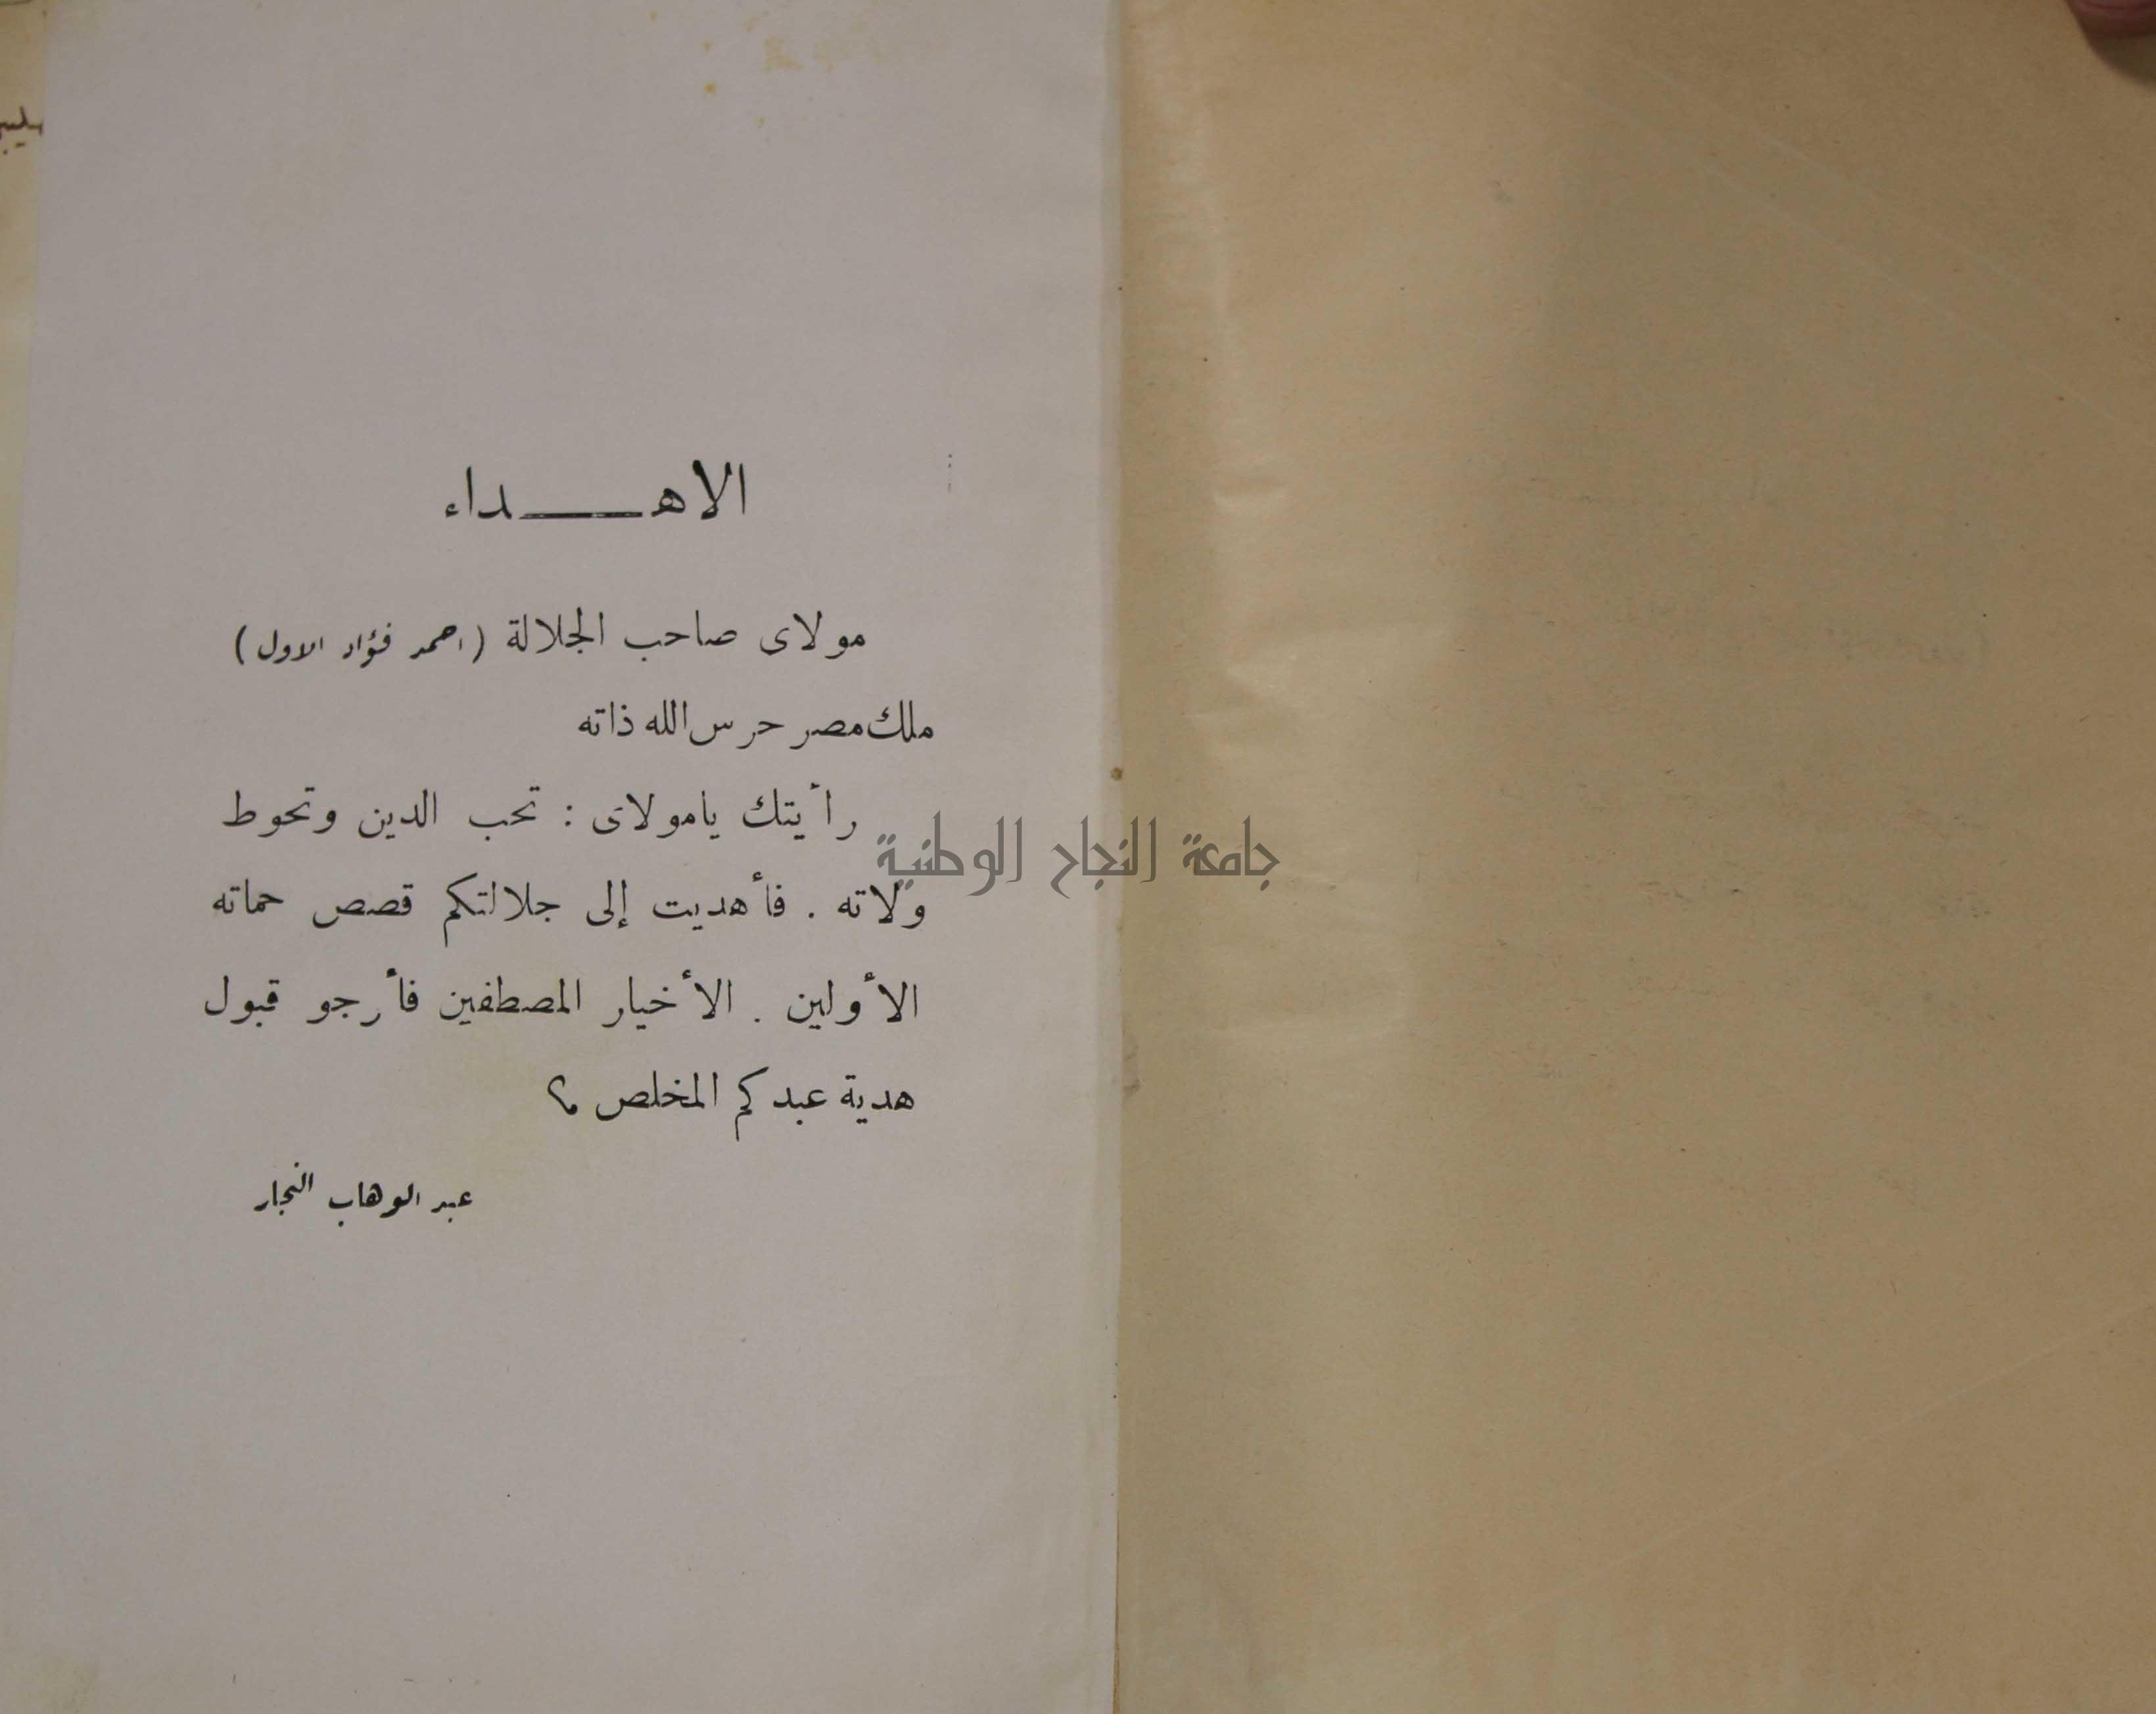 الاهـــداء
مولاى صاحب الجلالة (احمد فؤاد الاول)
ملك مصر حرس الله ذاته
رأيتك يامولاى : تحب الدين وتحوط
جامعة النجاح الوطنية
ولاته . فأهديت إلى جلالتكم قصص حماته
الأولين . الأخيار المصطفين فأرجو قبول
هدية عبدكم المخلص
عبد الوهاب النجار